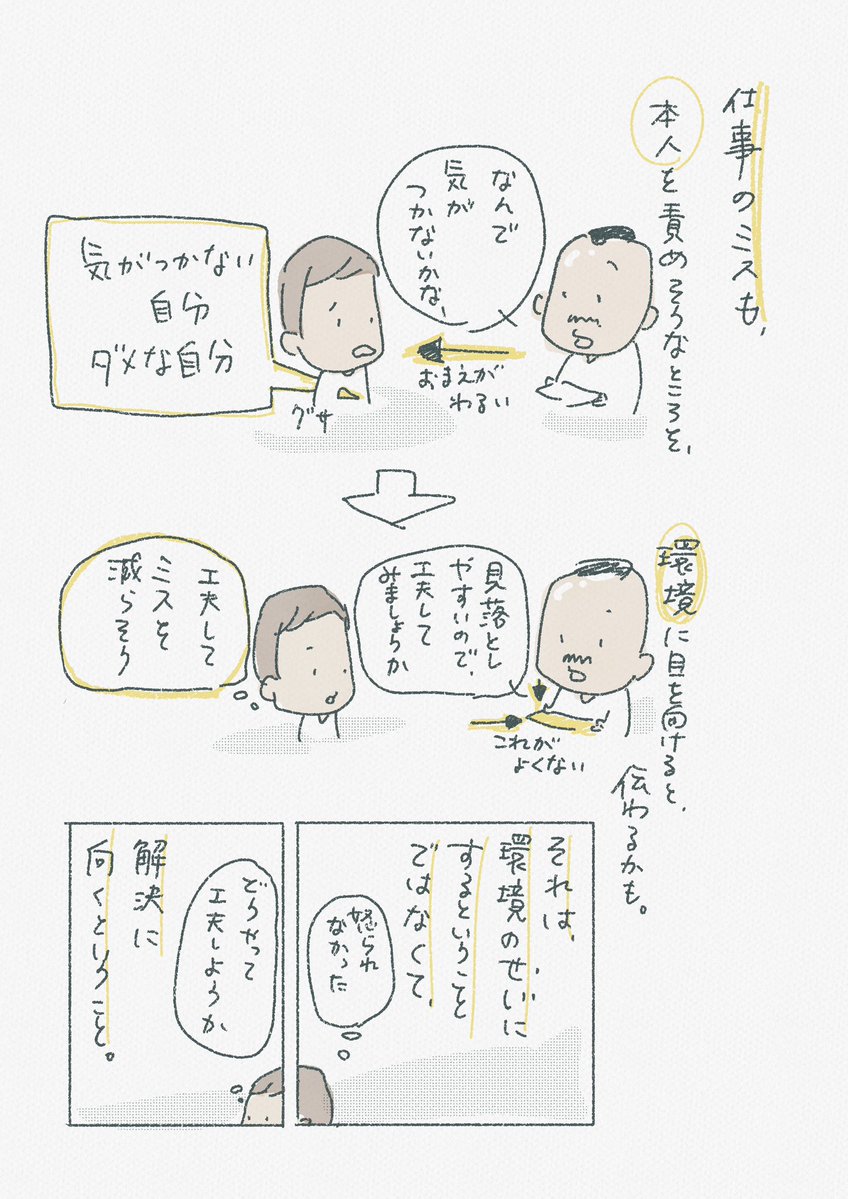 仕事のミスも、
本人を責めそうなところを、
なんで
気が
つかないかな、
おまえが
わるい
グサ
気がつかない
自分
ダメな自分
環境に目を向けると、
伝わるかも。
見落とし
やすいので、
工夫して
みましょうか
これが
よくない
工夫して
ミスを
減らそう
それは、
環境のせいに
するということ
ではなくて、
怒られ
なかった
どうやって
工夫しようか
解決に
向くということ。